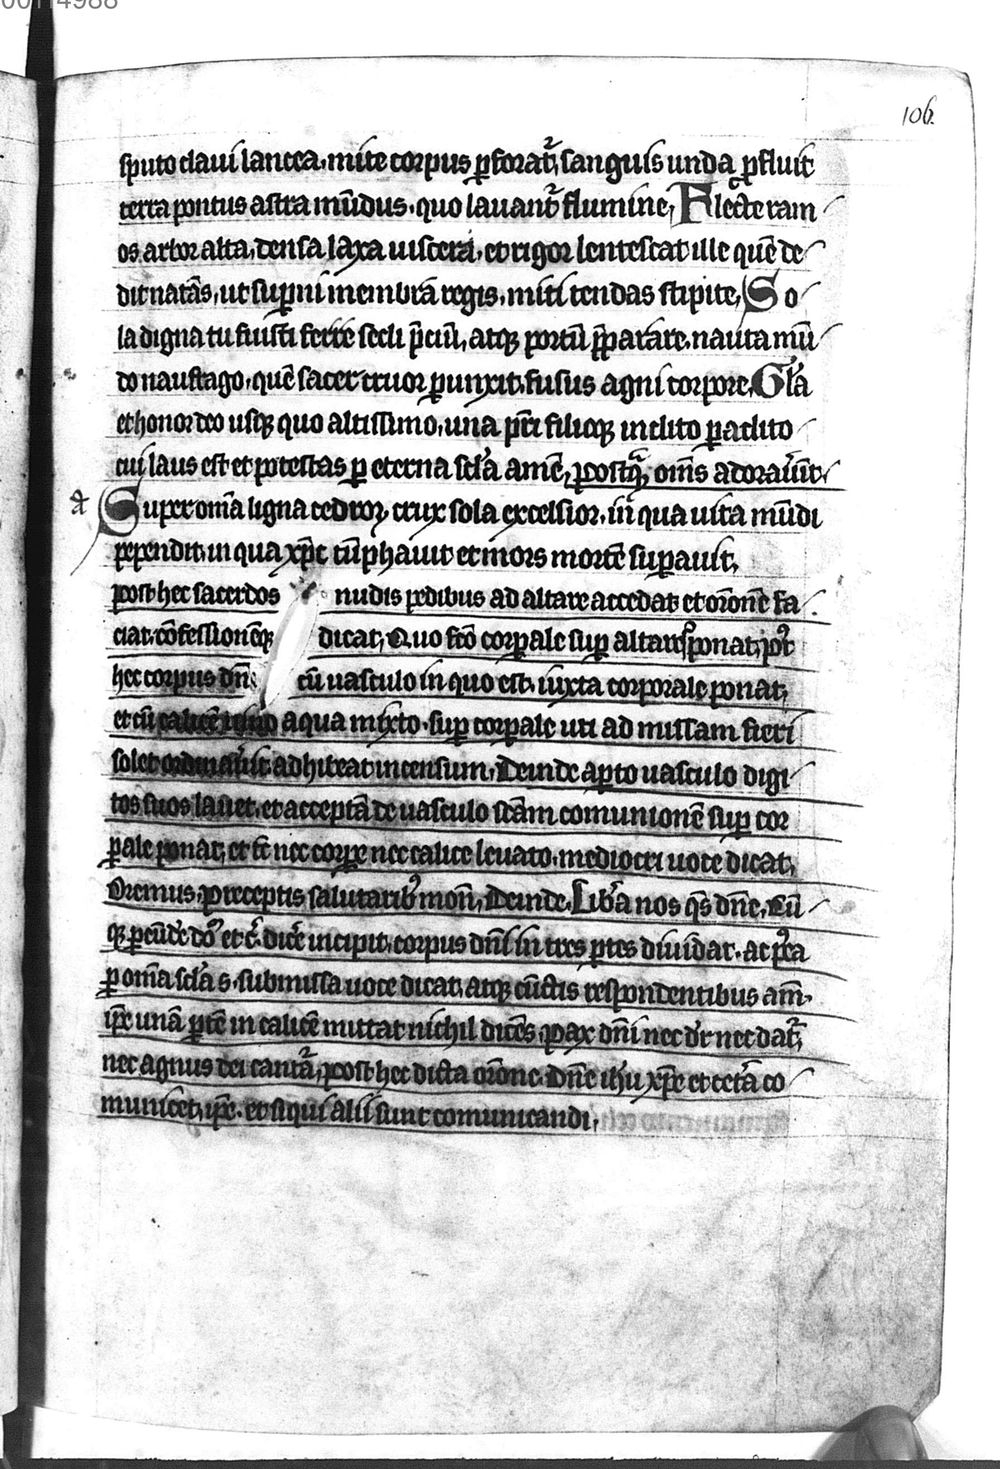 00114988
106.
sputo claui lancea. mite corpus ꝑforat᷑, sanguis unda ꝓfluit
terra pontus astra mūdus. quo lauant᷑ flumine, Flecte ram
os arbor alta, densa laxa uiscera. et rigor lentescat ille quē de
dit natās, ut suꝑni membra regis. miti tendas stipite, So
la digna tu fuisti ferre secli p̄ciū, atqꝫ portū p̄parare. nauta mū
do naufrago, quē sacer cruor ꝑunxit. fusus agni corpore, Gl'a
et honor deo usqꝫ quo altissimo, una pr̄i filioqꝫ inclito paclito
cui laus est et potestas ꝑ eterna scl'a amē, postq̄ om̄s adorauīt.
a Super om̄a ligna cedroꝝ. crux sola excelsior. in qua uita mūdi
pependit. in qua xp̄c tⁱūphauit et mors mortē suꝑauit,
post hec sacerdos nudis pedibus ad altare accedat et or̄onē fa
ciat. cōfessionēqꝫ dicat, Quo fc̄o corꝑale suꝑ altare ponat, pt᷒
hec corpus dn̄i cū uasculo in quo est. iuxta corporale ponat,
et cū calicē uino aqua mixto. suꝑ corꝑale uti ad missam fieri
solet ordinauit adhibeat incensum. Deinde aꝑto uasculo digi
tos suos lauet. et acceptā de uasculo sc̄am comunionē suꝑ cor
ꝑale ponat, et nec corꝑe nec calice leuato. mediocri uoce dicat,
Oremus. preceptis salutarib᷒ mon̄, Deinde. Lib'a nos qs̄ dn̄e. Cū
qꝫ dic̄e incipit. corpus dn̄i in tres ꝑtes diuidat. ac
ꝑ om̄a scl'a s. submissa uoce dicat, atqꝫ cūctis respondentibus am̄.
ip̄e unā ꝑtē in calicē mittat nichil dicēs. pax dn̄i nec dr̄ nec dat᷑,
nec agnus dei cantat᷑, post hec dicta or̄one. Dn̄e ih'u xp̄e et cet'a co
municet, ip̄e. et siqui alii sunt comunicandi,